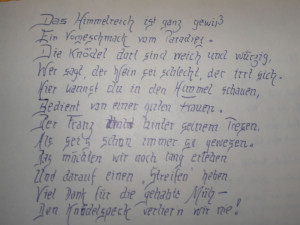 Das Himmelreich ist ganz gewiß
Ein Vorgeschmack vom Paradies.
Die Knödel dort sind weich und würzig,
Wer sagt, der Wein sei schlecht, der irrt sich.
Hier kannst du in den Himmel schauen,
Bedient von einer guten Frauen.
Der Franz hinter seinem Tresen,
Als sei's schon immer so gewesen.
Das möchten wir noch lang erleben
Und darauf einen "Streifen" heben
Viel Dank für die gehabte Müh –
Den Knödelspeck verliern wir nie!